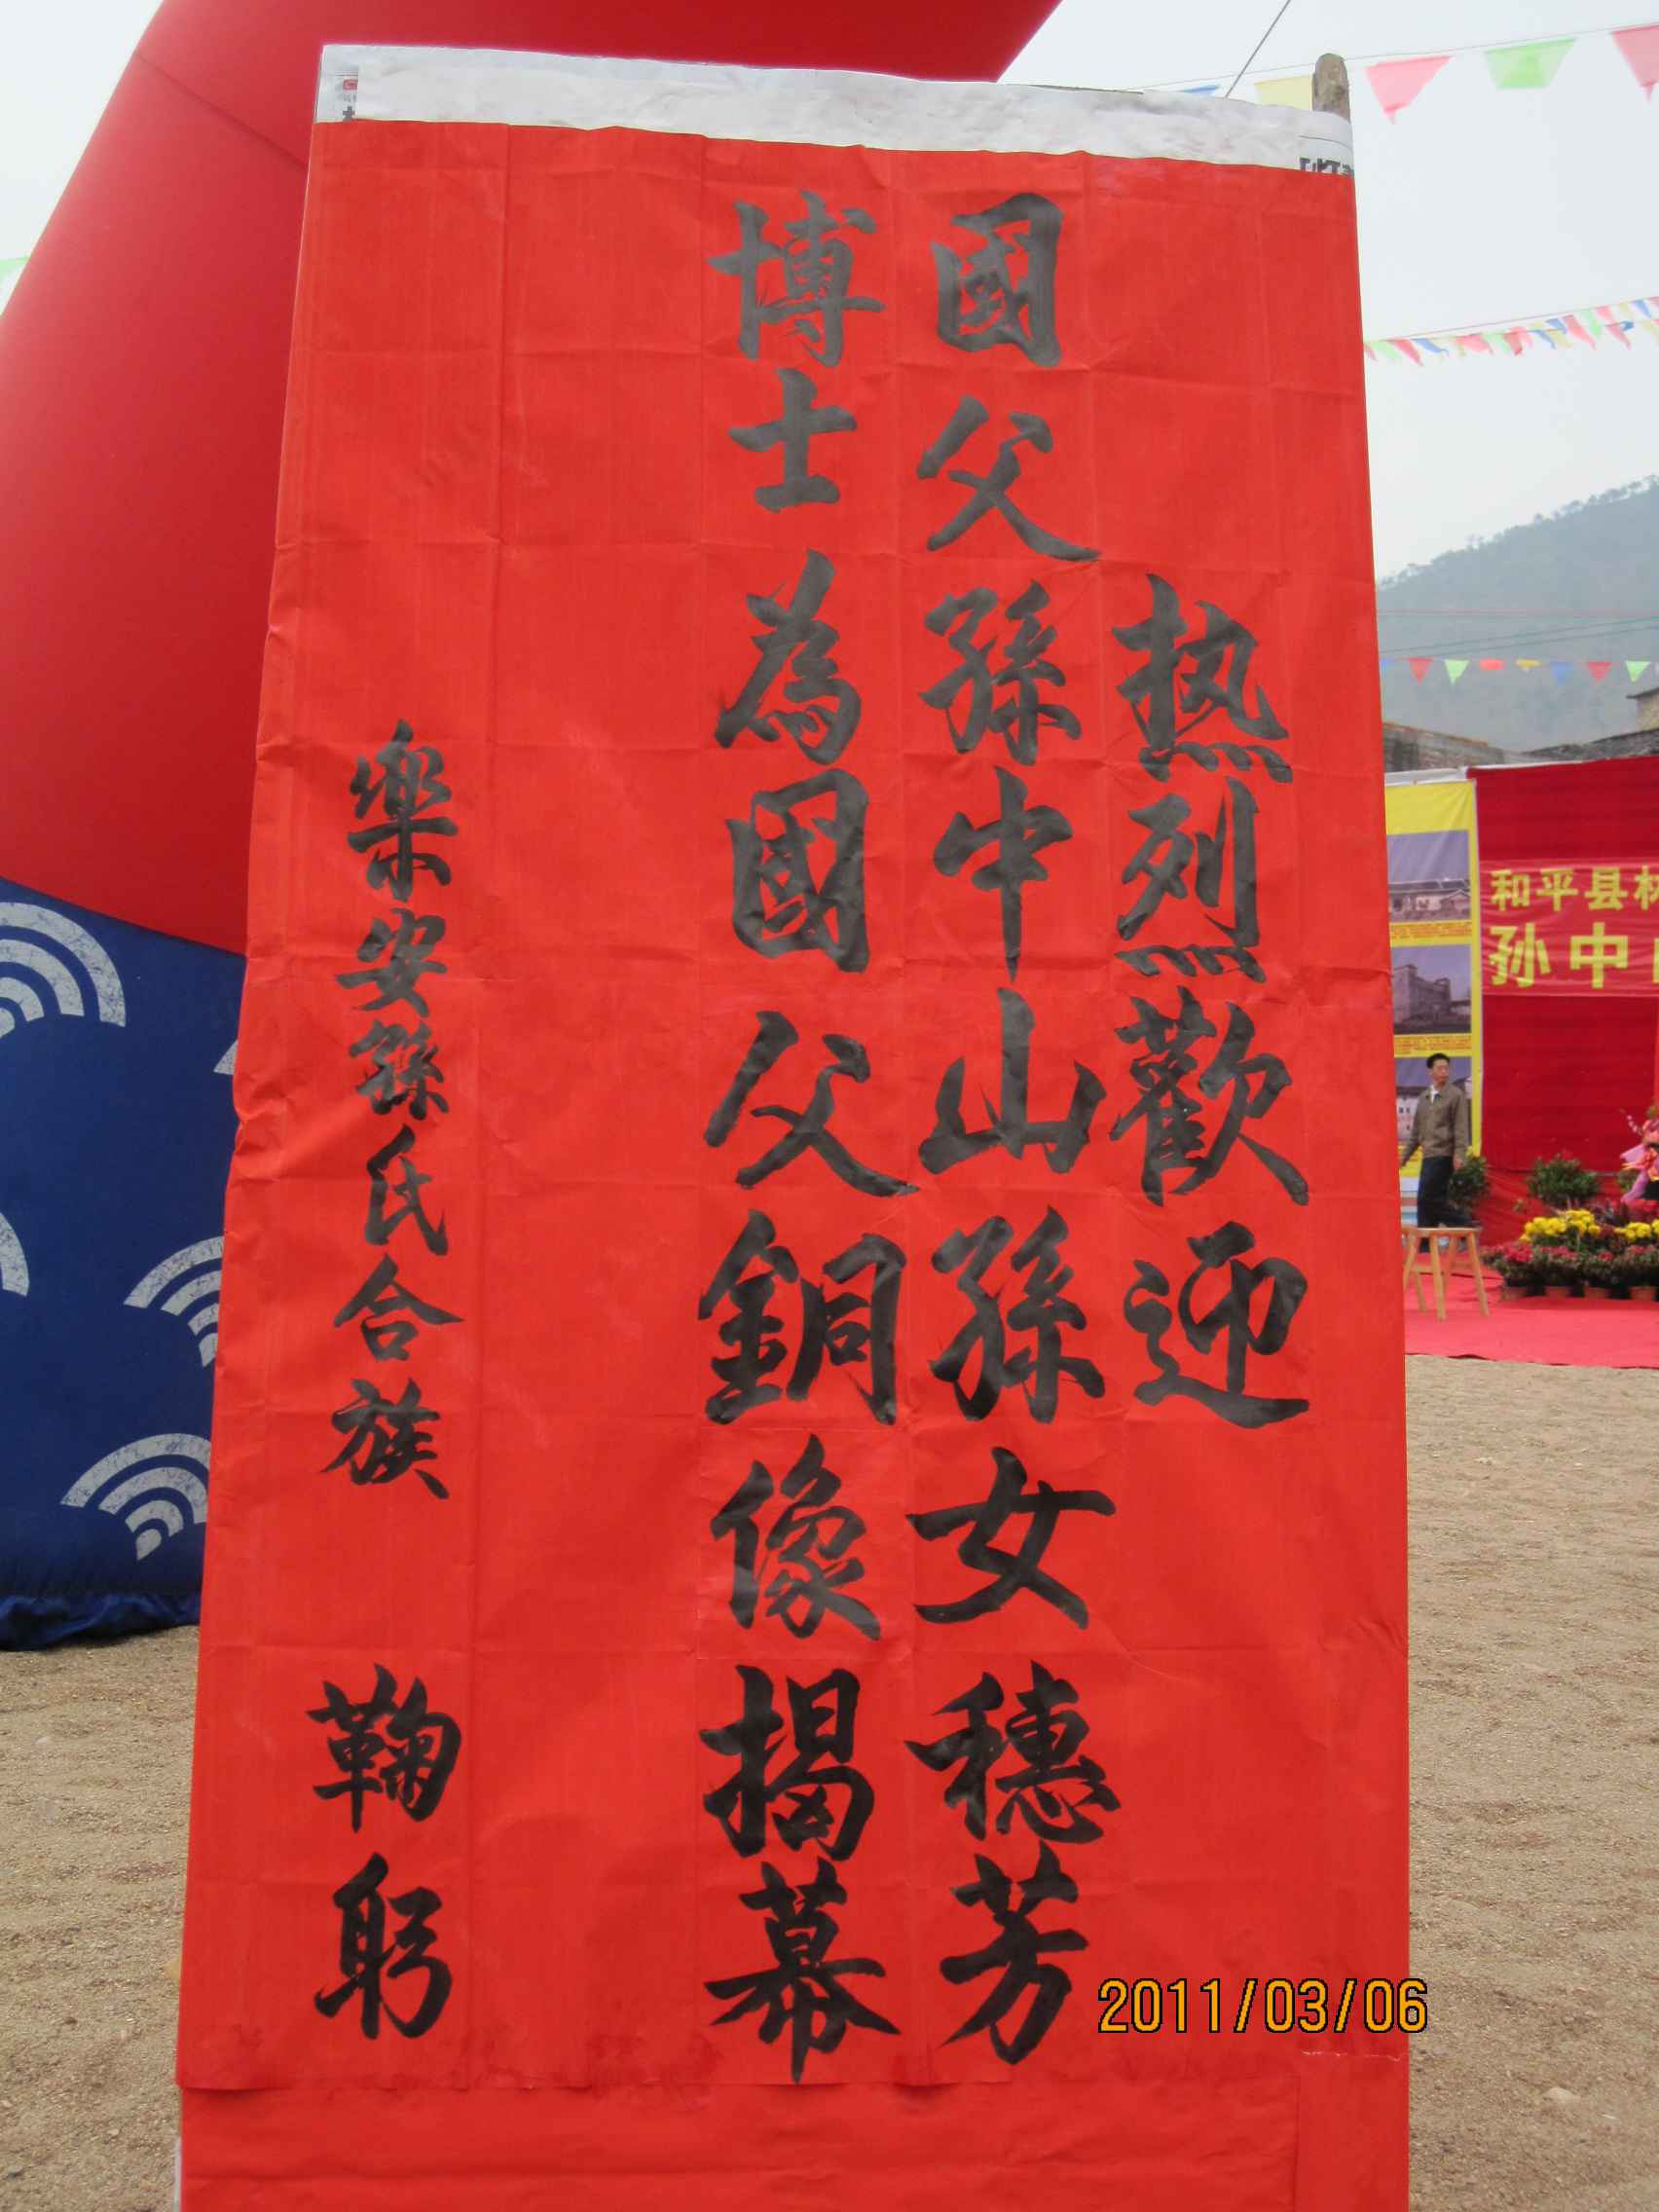 热烈歡迎
國父孫中山孫女穗芳
博士為國父銅像揭幕
樂安孫氏合族 鞠躬
和平县林
孙中山
2011/03/06